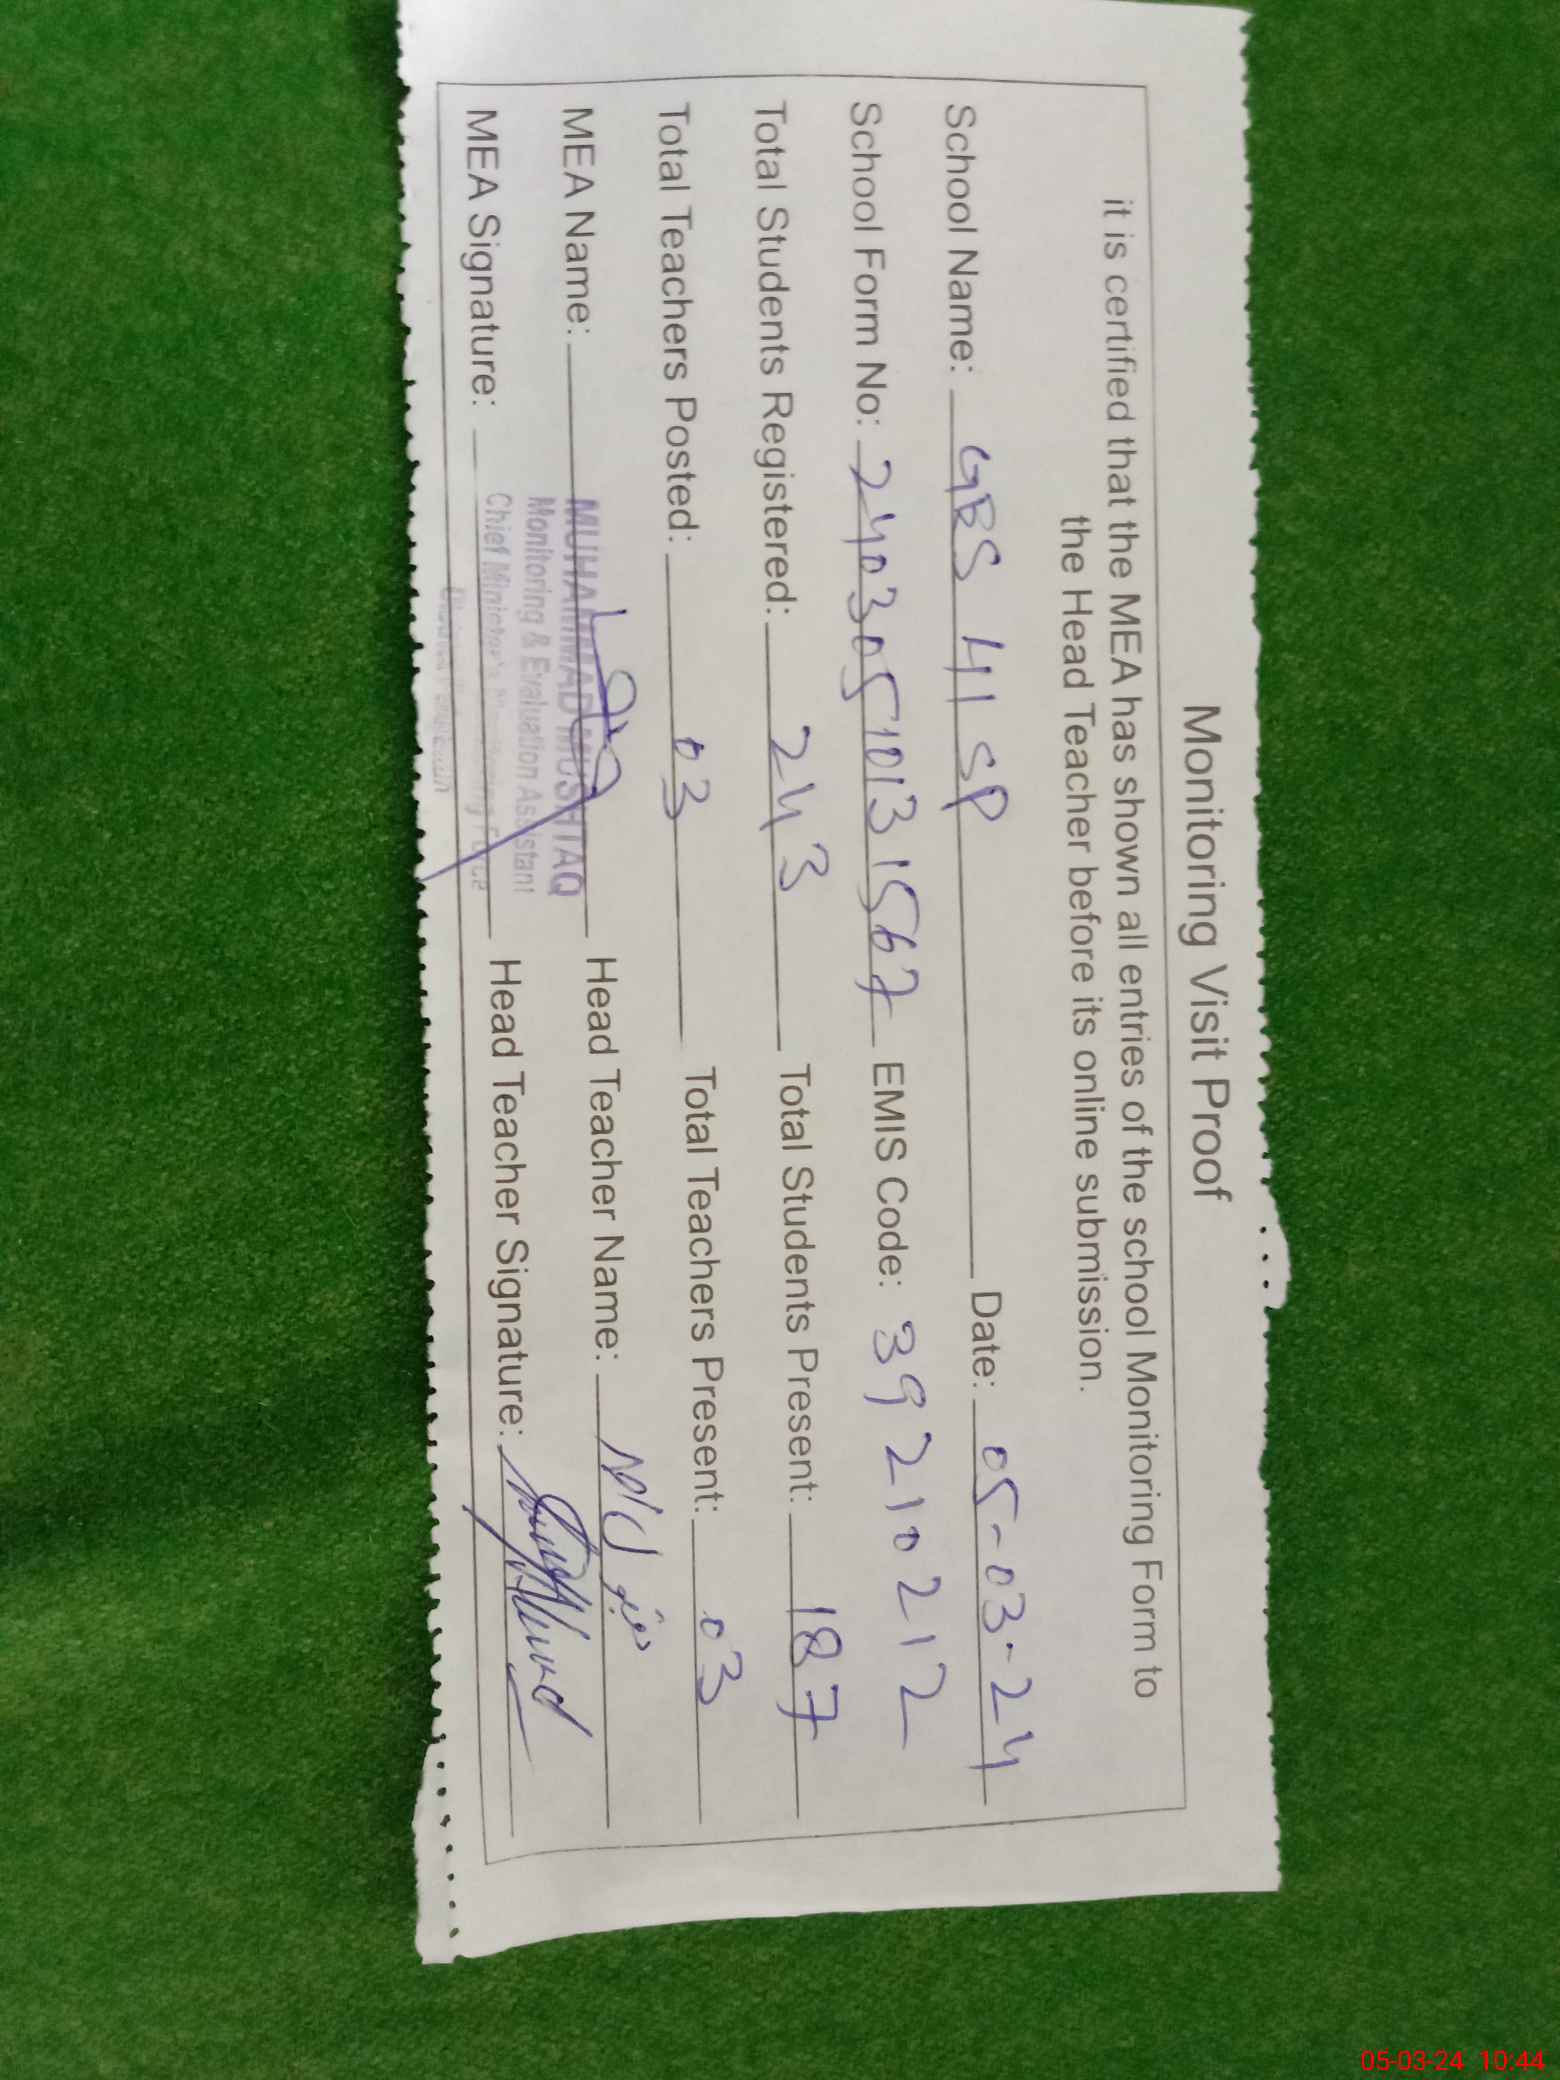 Monitoring Visit Proof
it is certified that the MEA has shown all entries of the school Monitoring Form to
the Head Teacher before its online submission.
School Name: GBS 41 SP Date: 05-03-24
School Form No: 24030510131567 EMIS Code: 39210212
Total Students Registered: 243 Total Students Present: 187
Total Teachers Posted: 03 Total Teachers Present: 03
MEA Name: MUHAMMAD MUSHTAQ Head Teacher Name:
Monitoring & Evaluation Assistant
MEA Signature: Chief Minister's Monitoring Force Head Teacher Signature:
05-03-24 10:44